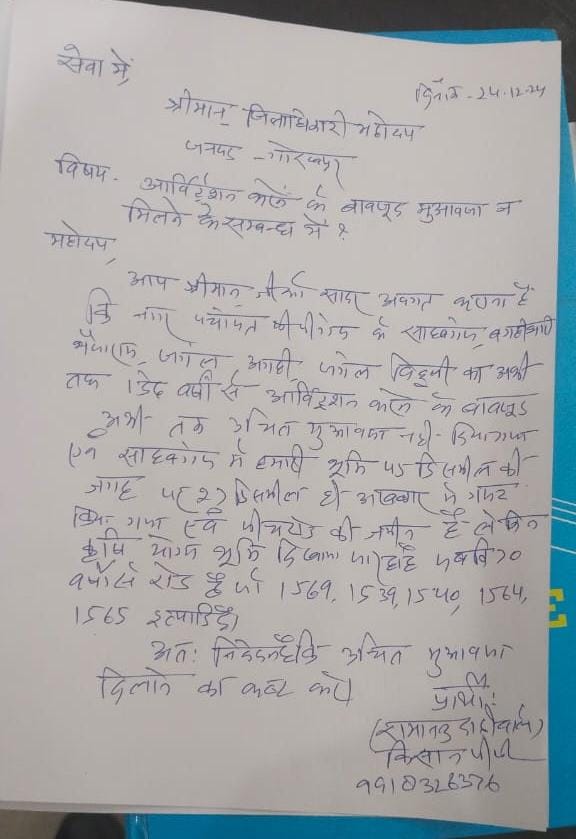 सेवा में,
दिनांक - 24.12.24
श्रीमान् जिलाधिकारी महोदय
जनपद - गोरखपुर
विषय - आर्विट्रेशन करने के बावजूद मुआवजा न
मिलने के सम्बन्ध में ?
महोदय,
आप श्रीमान् जी को सादर अवगत कराना है
कि नगर पंचायत पीपीगंज के साहबगंज,
जंगल अगही, जंगल बिहुली का अभी
तक डेढ़ वर्षों से आर्विट्रेशन करने के बावजूद
अभी तक उचित मुआवजा नहीं दिया गया
एवं साहबगंज में हमारी भूमि 45 डिसमील की
जगह पर 27 डिसमील ही अखबार में गजट
किया गया एवं पीचरोड की जमीन है लेकिन
कृषि योग्य भूमि दिखाया जा रहा है जबकि 20
वर्षों से रोड है जो 1569, 1539, 1540, 1564,
1565 इत्यादि है।
अतः निवेदन है कि उचित मुआवजा
दिलाने का कष्ट करें।
प्रार्थी:
किसान
9910326376